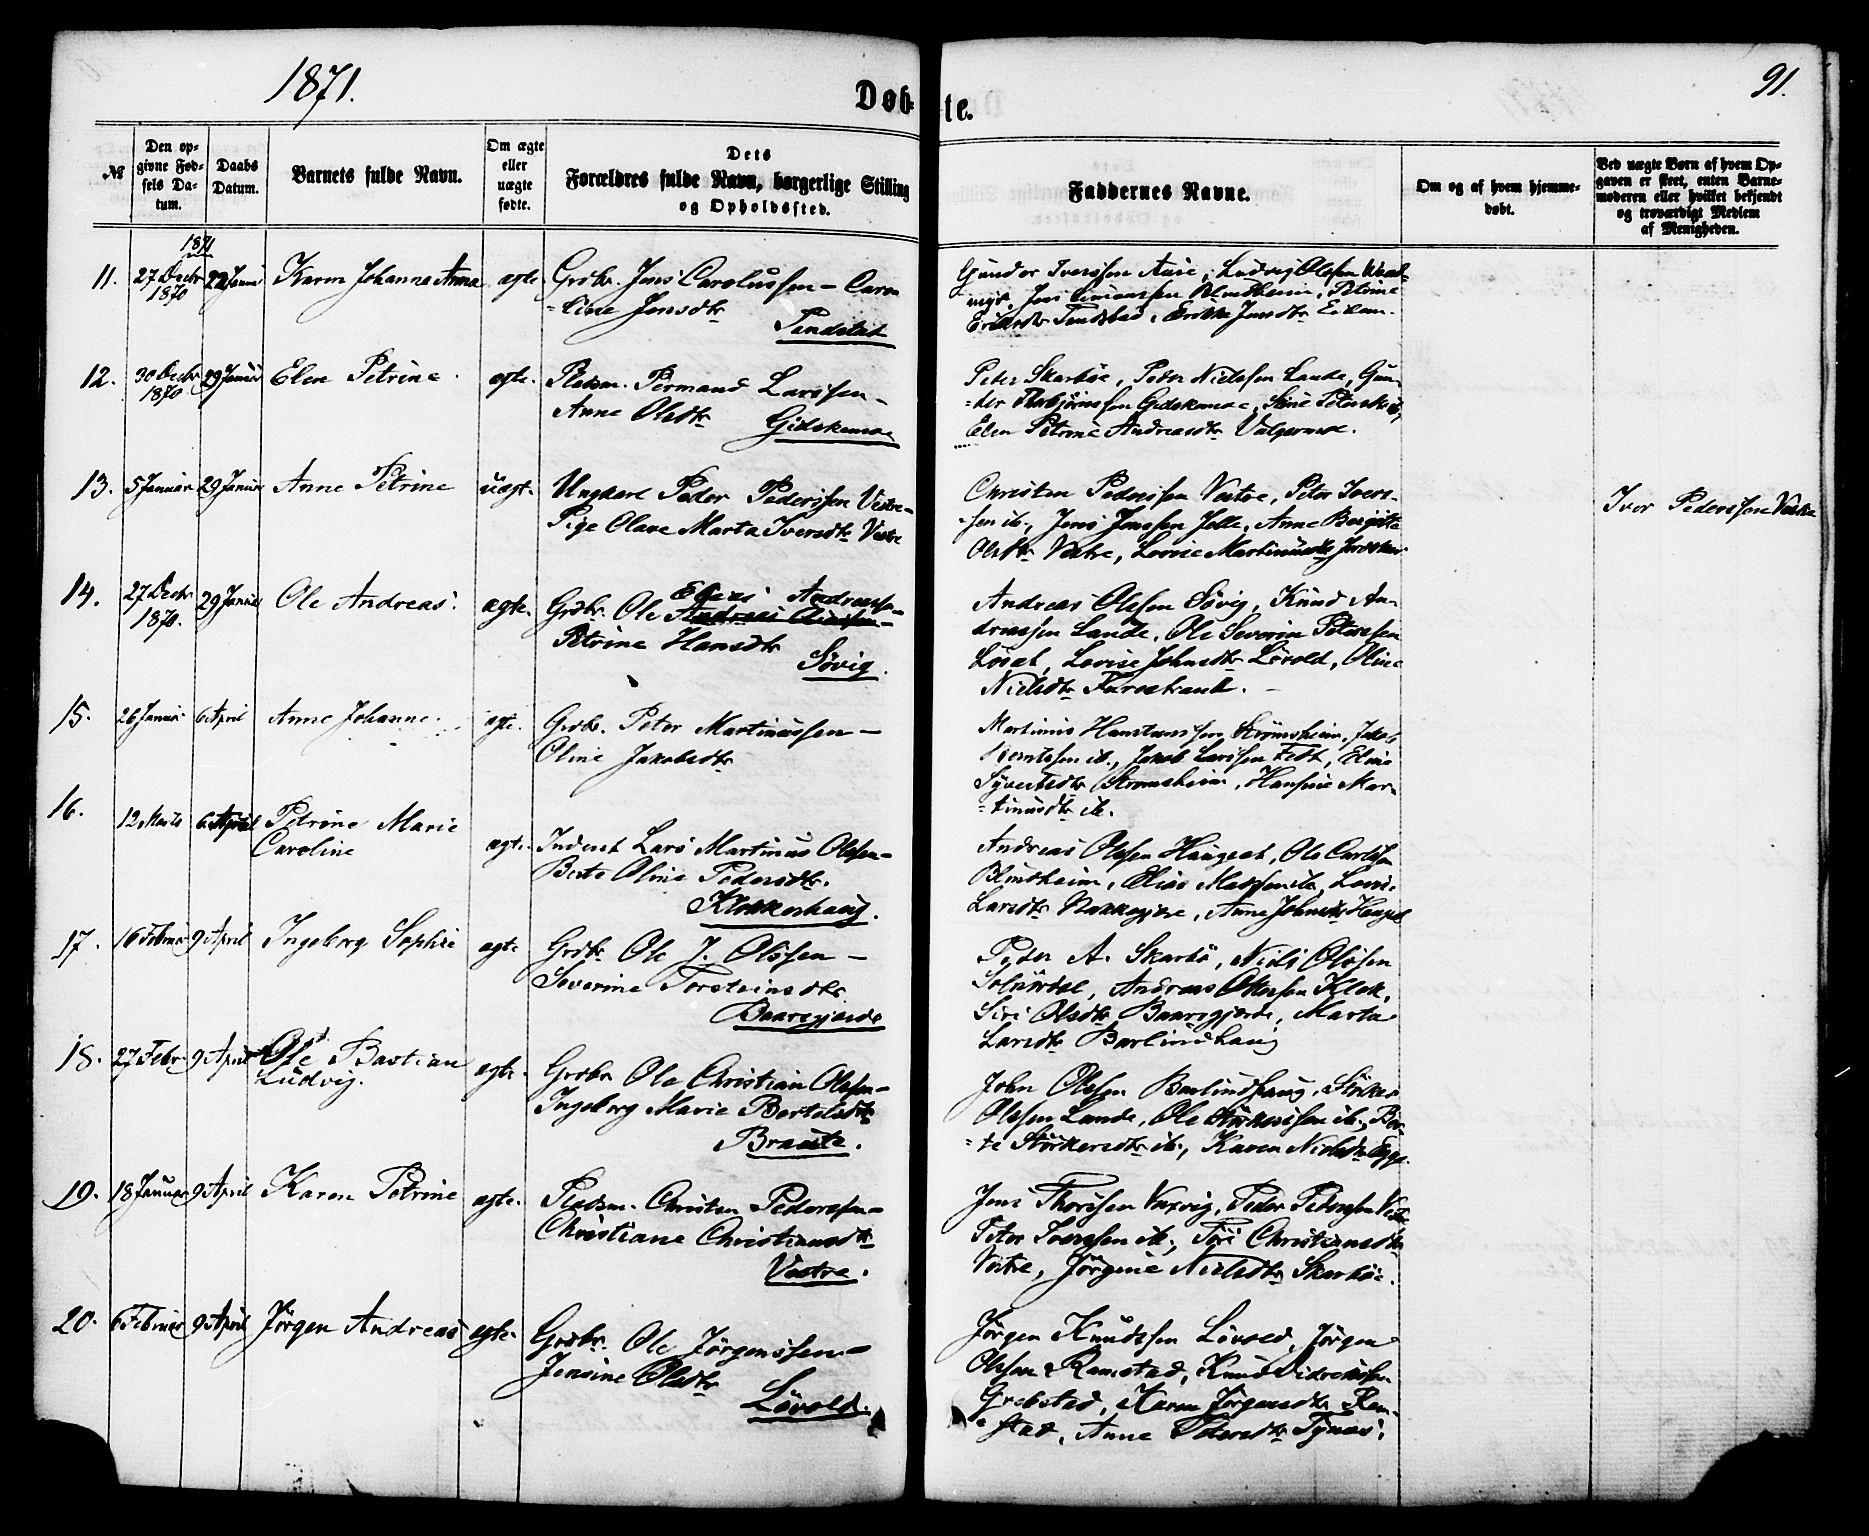 1871.
91.
Døbte.
№
Den opgivne Fødsels Datum.
Daabs Datum.
Barnets fulde Navn.
Om ægte eller uægte fødte.
Dets
Forældres fulde Navn, borgerlige Stilling
og Opholdssted.
Faddernes Navne.
Om og af hvem hjemmedøbt.
Ved uægte Børn af hvem Opgaven er skeet, enten Barnemoderen eller hvilket bekjendt og troværdigt Medlem af Menigheden.
1871
11. 27 Decbr 1870 22 Januar Karen Johanna Anna ægte Grdbr. Jens Carolussen – Caro
=line Jensdtr
Tandstad
Gunder Iverssen Aure, Ludvig Olssen
Jens Simonssen Blindheim, Petrine
12. 30 Decbr 1870 29 Januar Elen Petrine. ægte. Pladsm. Permand Larssen –
Anne Olsdtr
Gidskemoe
Peder Skarbøe, Peder Nielssen Lande, Gun
=der Thorbjørnssen Gidskemoe,
Elen Petrine Andreasdtr Valgermoe.
13. 5 Januar 29 Januar Anne Petrine uægt. Ungkarl Peder Pederssen Vestre –
Pige Olave Marta Iversdtr Vestre
Christen Pederssen Vestre, Peter Ivers-
=sen ib., Jens Jenssen Jelle, Anne Bergitte
Olsdtr Vestre, Lovise Martinusdtr
Iver Pederssen Vestre
14. 27 Decbr 1870. 29 Januar Ole Andreas. ægte. Grdbr. Ole Elias Andreassen –
Petrine Hansdtr
Søvig.
Andreas Olssen Søvig, Knud An-
dreassen Lande, Ole Severin Peterssen
Løset, Lovise Johnsdtr Løvold, Oline
Nielsdtr Furestrand. –
15. 26 Januar 6 April Anne Johanne. ægte. Grdbr. Peter Martinussen –
Oline Jakobsdtr
Martinus Strømsheim, Jakob
Berntssen ib., Jakob Larssen Fedt,
Sÿvertsdtr Strømsheim, Hansine Mar-
=tinusdtr ib.
16. 12 Marts 6 April Petrine Marie
Caroline ægte. Inderst Lars Martinus Olssen –
Berte Oline Pedersdtr.
Klokkerhaug.
Andreas Olssen Haugset, Ole Carlssen
Blindheim, Elias Madssen ib., Lovise
Larsdtr, Anne Johnsdtr
17. 16 Februar 9 April Ingeborg Sophie ægte Grdbr Ole J. Olssen –
Severine Torsteinsdtr
Baaregjerde
Peder A. Skarbø, Niels Olssen
Solnørdal, Andreas Klok,
Siri Olsdtr Baaregjerde, Marta
Larsdtr Barlindhaug
18. 27 Febr 9 April Ole Bastian
Ludvig. ægte. Grdbr Ole Christian Olssen –
Ingeborg Marie Bertelsdtr
Braute.
John Olssen Barlindhaug, Størker
Olssen Lande, Ole Størkerssen ib., Ber-
=te Størkersdtr ib., Karen Nielsdtr
19. 18 Januar 9 April Karen Petrine ægte. Pladsm. Christen Pederssen –
Christiane Christiansdtr
Vestre.
Jens Thorssen Vaxvig, Peder Pederssen Vestre
Peter Iverssen ib., Siri Christiansdtr
Vestre, Jørgine Nielsdtr Skarbøe.
20. 6 Februar 9 April Jørgen Andreas ægte. Grdbr. Ole Jørgenssen –
Jensine Olsdtr
Løvold.
Jørgen Knudssen Løvold, Jørgen
Olssen Ramstad, Knud
Grebstad, Karen Jørgensdtr Ram-
=stad, Anne Petersdtr Tÿnes.